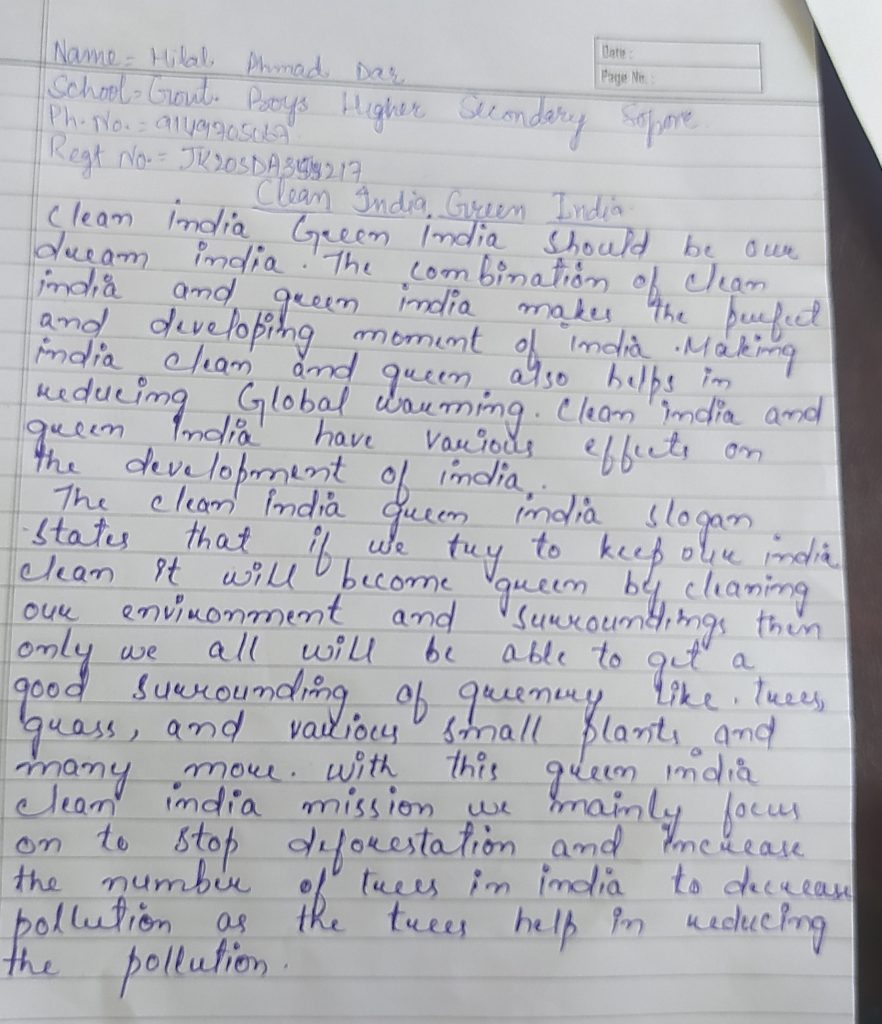 Date :
Page No. :
Name = Hilal Ahmad Dar
School = Govt. Boys Higher Secondary Sopore
Ph. No. =
Regt No. =
Clean India Green India
Clean india Green India should be our
dream india. The combination of clean
india and green india makes the perfect
and developing moment of india. Making
india clean and green also helps in
reducing Global warming. Clean india and
green India have various effects on
the development of india.
The clean india green india slogan
states that if we try to keep our india
clean it will become green by cleaning
our environment and surroundings then
only we all will be able to get a
good surrounding of greenery like. trees,
grass, and various small plants and
many more. With this green india
clean india mission we mainly focus
on to stop deforestation and increase
the number of trees in india to decrease
pollution as the trees help in reducing
the pollution.